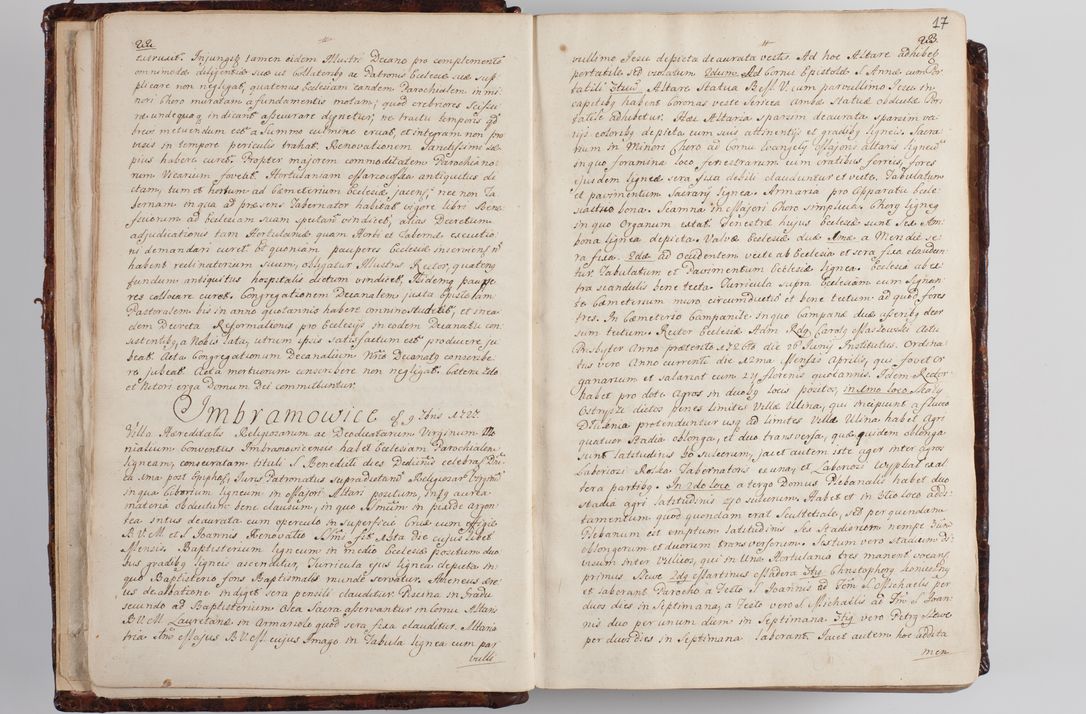 22.
tutruat. Injungit tamen eidem Illustri Decano pro complemento
omnimodæ diligentiæ suæ ut Collatores ac Patronos Ecclesiæ suæ sup¬
plicare non negligat, quatenus Ecclesiam eandem Parochialem in mi¬
nori Choro muratam a fundamentis motam, quod crebriores scissu
ræ undequaq indicant assecurare dignetur, ne tractu temporis qd
brevi metuendum est a summo culmine eruat, et integram non pro
visis in tempore periculis trahat. Renovationem Sanctissimi sæ¬
pius habere curet. Propter majorem commoditatem Parochiano¬
rum Vicarium foveat. Hortulaniam antiquitus di
ctam, tum et hortum ad Cæmeterium Ecclesiæ jacens, nec non Ta
bernam in qua ad præsens Tabernator habitat vigore libri Bene¬
ficiorum ad Ecclesiam suam spectan vindicet, alias Decretum
adjudicationis tam Hortulaniæ quam Horti et Tabernæ executio
ni demandari curet. Et quoniam pauperes Ecclesiæ inservien n
habent reclinatorium suum, obligatur Illustris Rector, quatenq
fundum antiquitus hospitalis dictum vindicet, Ibidemq paupe¬
res collocare curet. Congregationem Decanalem juxta Epistolam
Pastoralem bis in anno quotannis habere omnino studebit, et in ea
dem Decreta Reformationis pro Ecclesijs in eodem Decanatu con¬
sistentibq, a Nobis lata, utrum ipsis satisfactum est producere ju
beat. Acta Congregationum Decanalium Noto Decanatq conscribe¬
re jubeat. Acta mortuorum conscribere non negligat. Cetera zelo
et Nitori erga Domum Dei committuntur.
Imbramowice
Villa Hæreditalis Religiosarum ac Deodicatarum Virginum Mo
nialium Conventus Imbramowicensis habet Ecclesiam Parochialem
ligneam, consecratam tituli S. Benedicti dies Dedicnis celebraf Dni
ca 1ma post Epiphaf, Juris Patronatus supradictarum Religiosar Virginu
in qua Ciborium ligneum in Majori Altari positum, intq aurea
materia obductum bene clausum, in quo SSmum in pixide argen
tea intus deaurata cum operculo in superficie Crux cum effigie
B.V.M. et S. Joannis Renovatio SSmi fit 1sta die cujus libet
Mensis. Baptisterium ligneum in medio Ecclesiæ positum duo
bus gradibq ligneis ascenditur, Turricula ejus lignea depicta in
quo Baptisterio fons Baptismalis munde servatur. Aheneus æri¬
us dealbatione indiget sera pensili clauditur Piscina in Gradu
secundo ad Baptisterium. Olea Sacra asservantur in Cornu Altaris
B.V.M. Lauretanæ in Armariolo quod sera fixa clauditur. Altaria
tria. 1mu Majus B.V.M. cujus Imago in Tabula lignea cum par
vulli
17
23.
vullimo Jesu depicta deaurata veste. Ad hoc Altare adhibef
portatile sed violatum 2dum Ad Cornu Epistolæ S. Annæ cum Por
tatili 3tiu Altare Statua BSS. V. cum parvullimo Jesu in
capitibq habent Coronas veste sericea Ambæ Statuæ obductæ Por
tatile adhibetur. Hæc Altaria sparsim deaurata sparsim va
rijs coloribq depicta cum suis attinentijs et gradibq ligneis. Sacra
rium in Minori Choro ad Cornu Evangelij Majoris altaris ligneu
in quo foramina loco fenestrarum cum cratibus ferreis, fores
ejusdem ligneæ sera fixa debili clauduntur et vecte. Tabulatum
et pavimentum Sacrarij lignea. Armaria pro apparatu Eccle
siastico bona. Scamna in Majori Choro simplicia. Chorq ligneq
in quo Organum extat. Fenestræ hujus Ecclesiæ sunt sex Am¬
bona lignea depicta. Valvæ Ecclesiæ duæ 1mæ a Meridie se¬
ra fixa. 2dæ ad Occidentem vecte ab Ecclesia et sera fixa claudun¬
tur. Tabulatum et Pavimentum Ecclesiæ lignea. Ecclesia ab ex¬
tra scandulis bene tecta. Turricula supra Ecclesiam cum signan
te Cæmeterium muro circumductum et bene tectum ad quod fores
tres. In Cæmeterio Campanile in quo Campanæ duæ asseribq deor
sum tectum. Rector Ecclesiæ Adm Rdq Carolq Masłowski Actu
Presbyter Anno prætento 1726to die 26 Junij Institutus. Ordina
tus vero Anno currenti die 12ma Mensis Aprilis, qui fovet or
ganarium et salariat cum 24 florenis quotannis. Idem Rector
habet pro dote agros in duobq locis positos, in 1mo loco Mały
Ostrysz dictos penes limites Villæ Ulina, qui incipiunt a fluvio
Dłubnia protenduntur usq ad limites Villæ Ulina habet Agri
quatuor Stadia oblonga, et duo transversa, quæ quidem oblonga
sunt latitudinis 90 sulcorum, jacet autem iste ager inter agros
Laboriosi Tabernatoris ex una, et Laboriosi Wyppiał exal
tera partibq. In 2do loco a tergo Domus Plebanalis habet duo
stadia agri latitudinis 240 sulcorum. Habet et in 3tio loco addi¬
tamentum quod quondam erat Scultetiale, sed per quendam
Plebanum est emptum latitudinis sex Stadiorum nempe
oblongorum et duorum transversorum. Sistum vero stadium di
visum inter Villicos, qui in Una Hortulania tres manent vocanf
primus Szewc 2dq Martinus Madera 3tiq Christophorq
et laborant Parocho a Festo S. Joannis ad Fem S. Michaelis per
duos dies in Septimana, a Festo vero S. Michaelis ad Fm S. Joan¬
nis duo per unum diem in Septimana. 3tiq vero Petrq Szewc
per duos dies in Septimana laborant. Jacet autem hoc addita
men